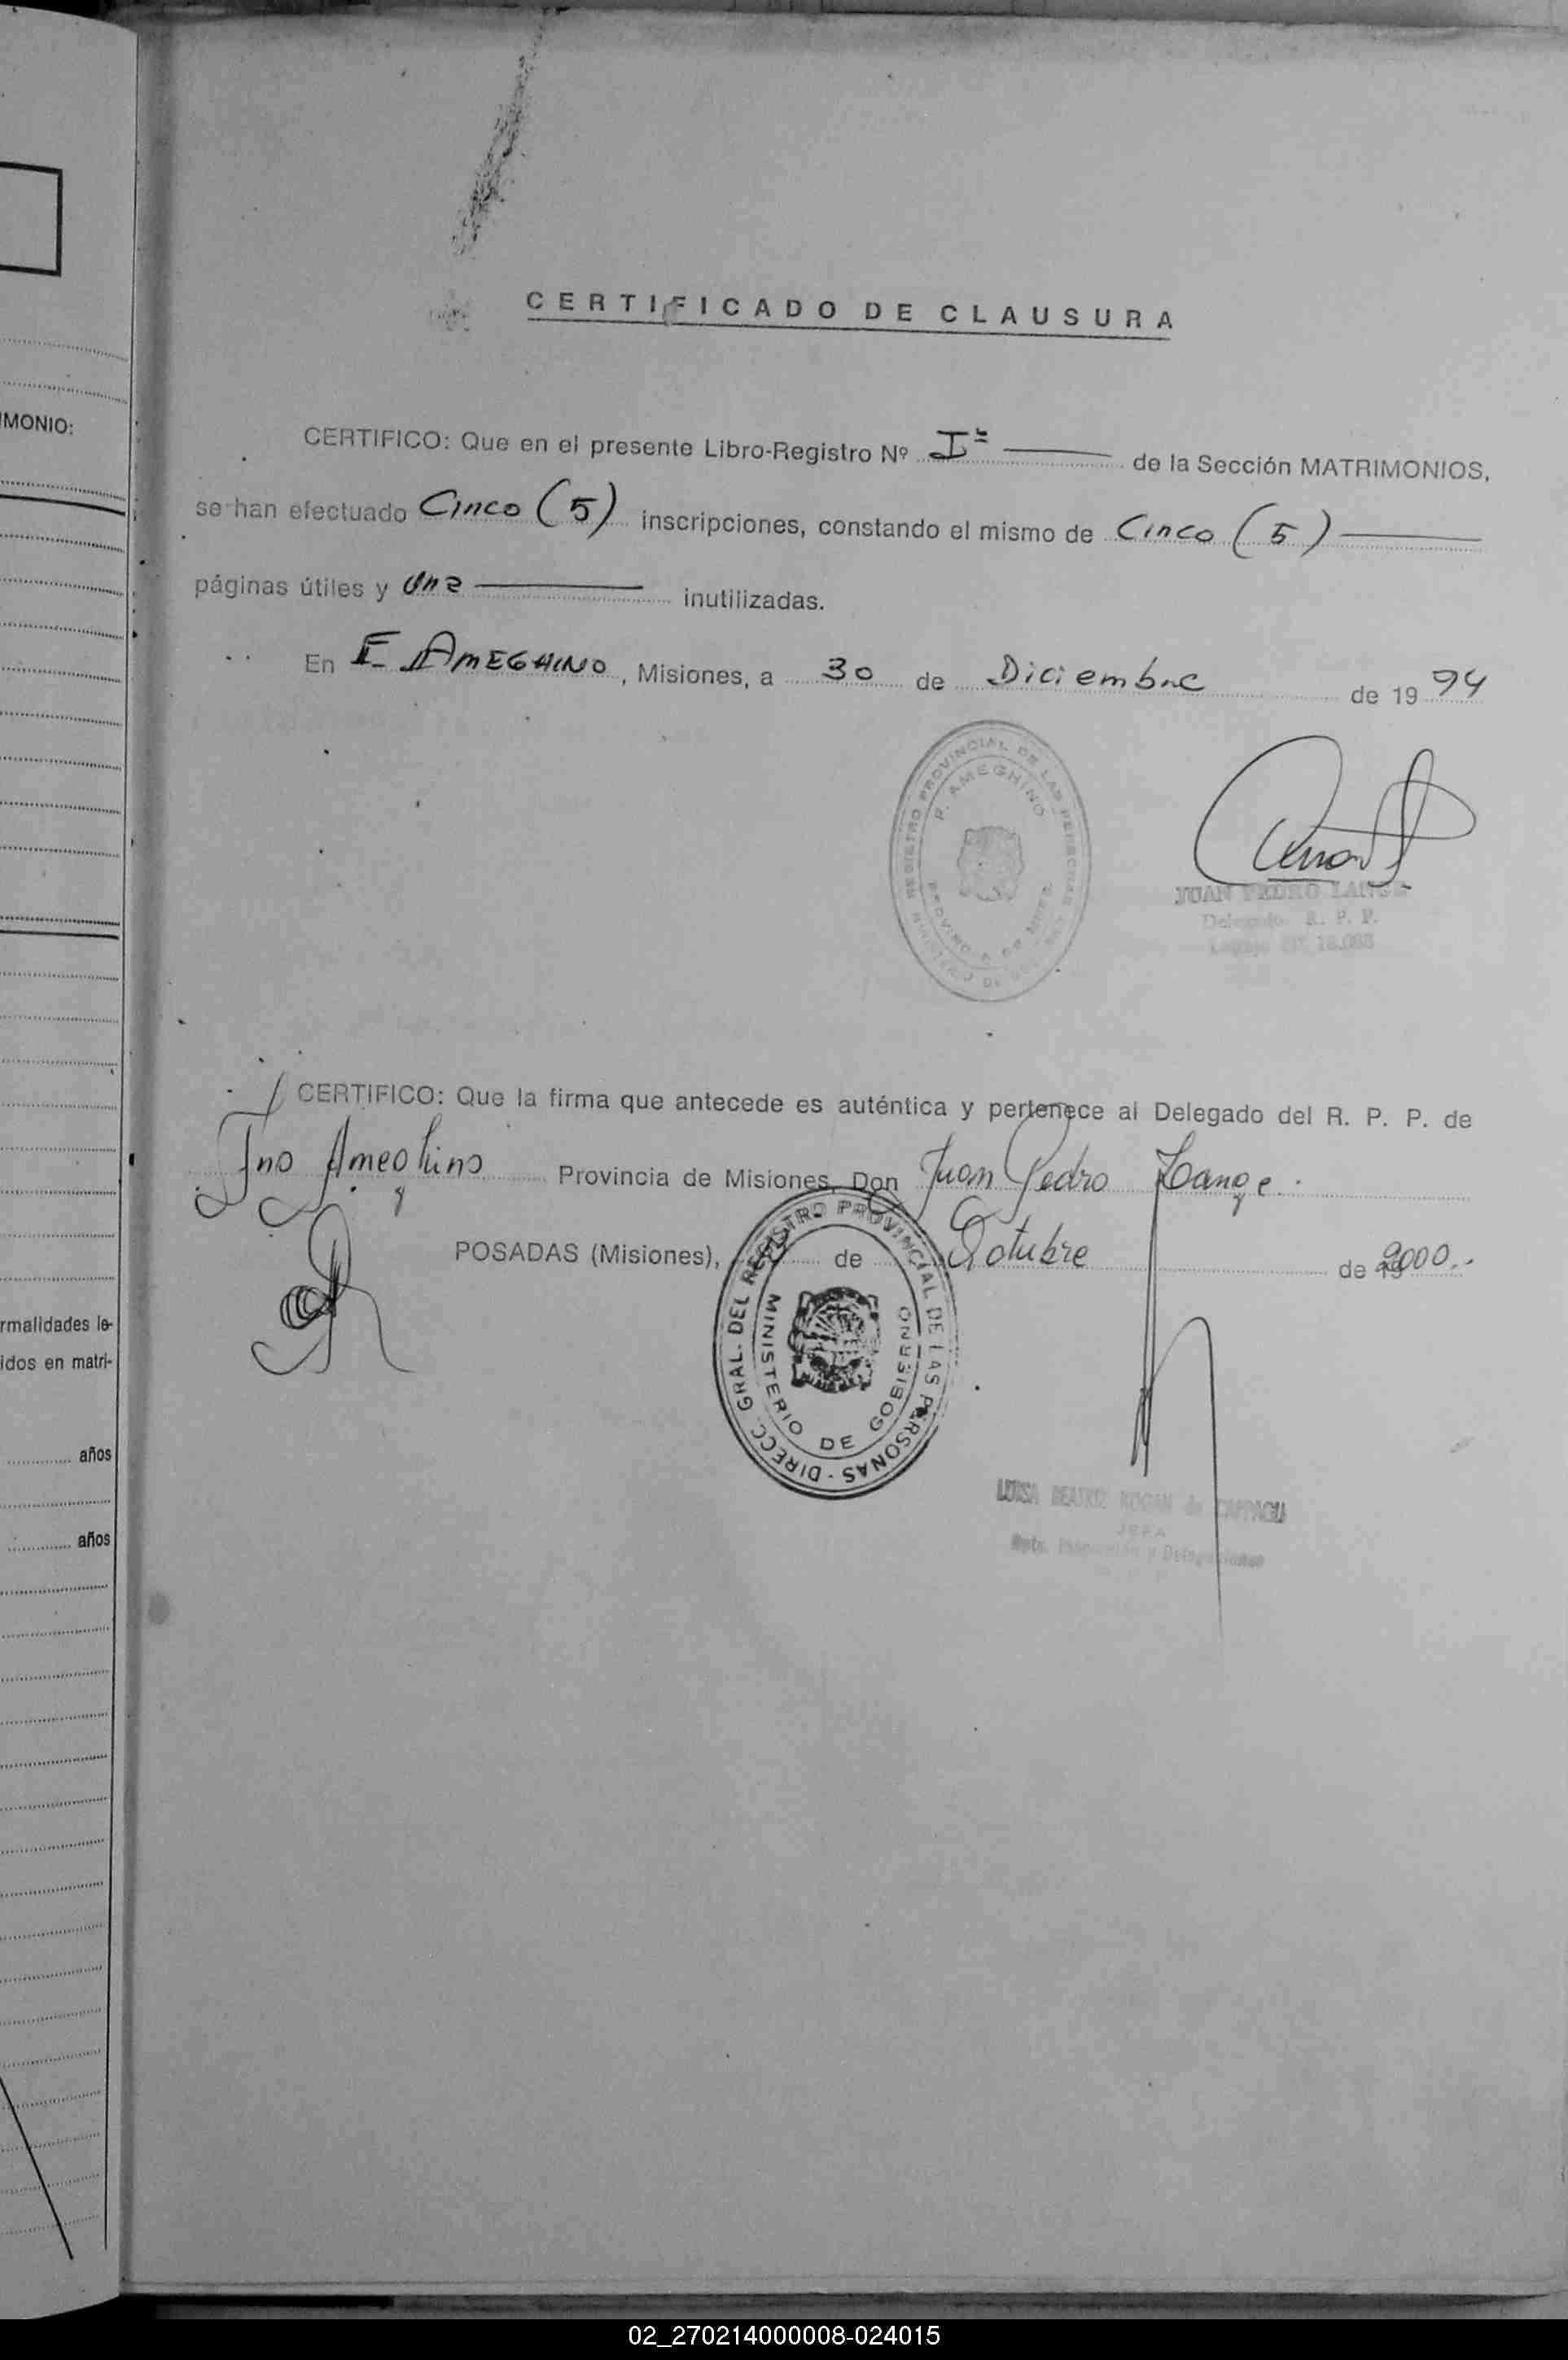 IMONIO:
rmalidades le-
idos en matri-
años
años
CERTIFICADO DE CLAUSURA
CERTIFICO: Que en el presente Libro-Registro Nº I= de la Sección MATRIMONIOS,
se han efectuado Cinco (5) inscripciones, constando el mismo de Cinco (5)
páginas útiles y una inutilizadas.
En F. AMEGHINO, Misiones, a 30 de Diciembre de 1994
REGISTRO PROVINCIAL DE LAS PERSONAS
F. AMEGHINO
JUAN PEDRO LANGE
Delegado R. P. P.
CERTIFICO: Que la firma que antecede es auténtica y pertenece al Delegado del R. P. P. de
Fno Ameghino Provincia de Misiones, Don Juan Pedro Lange.
POSADAS (Misiones), de Octubre de 19 2000..
DIRECC. GRAL. DEL REGISTRO PROVINCIAL DE LAS PERSONAS -
MINISTERIO DE GOBIERNO
LUISA BEATRIZ de
JEFA
02_270214000008-024015